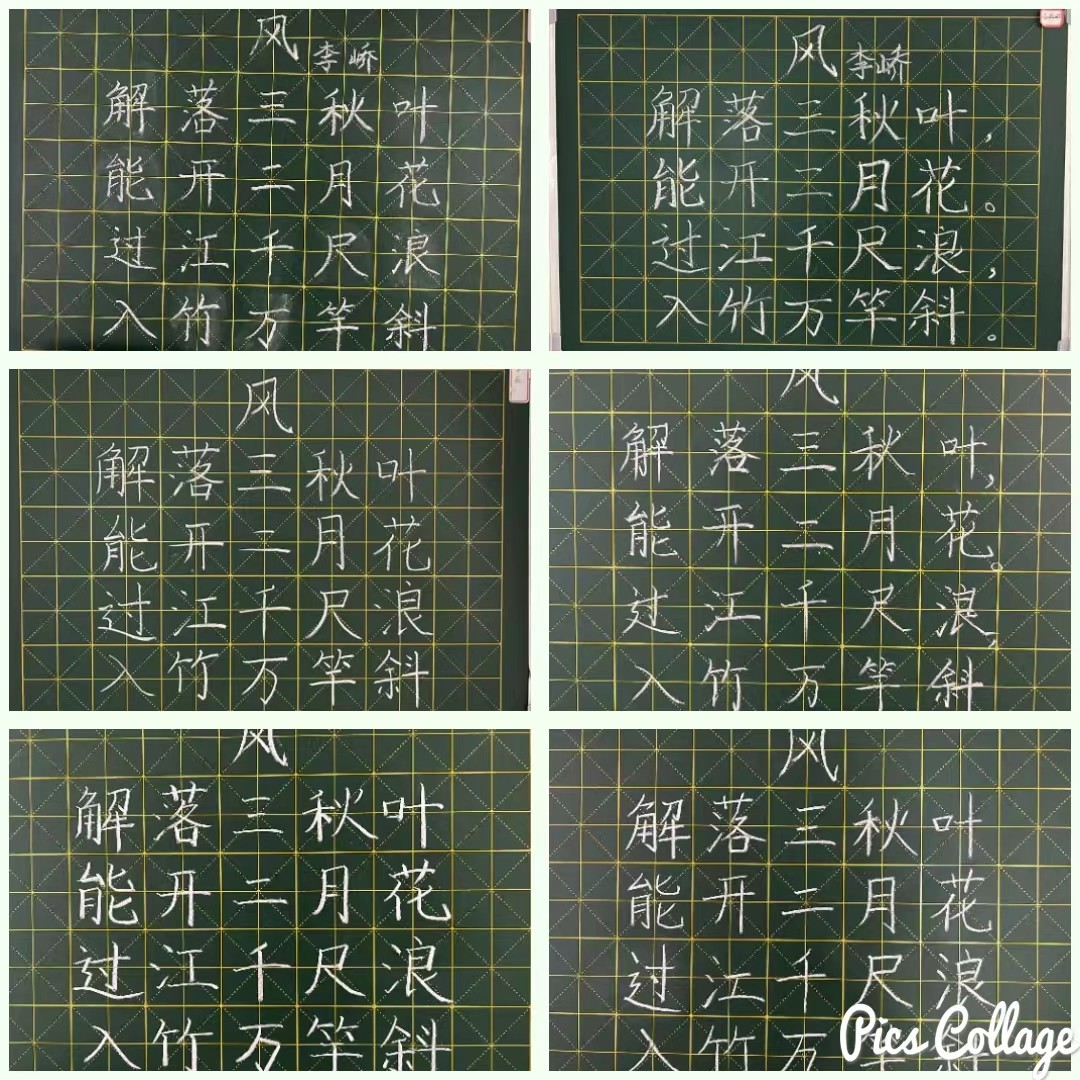 风
李峤
解落三秋叶
能开二月花
过江千尺浪
入竹万竿斜
风
李峤
解落三秋叶，
能开二月花。
过江千尺浪，
入竹万竿斜。
风
解落三秋叶
能开二月花
过江千尺浪
入竹万竿斜
风
解落三秋叶，
能开二月花。
过江千尺浪，
入竹万竿斜
风
解落三秋叶
能开二月花
过江千尺浪
入竹万竿斜
风
解落三秋叶
能开二月花
过江千尺浪
入竹万
Pics Collage